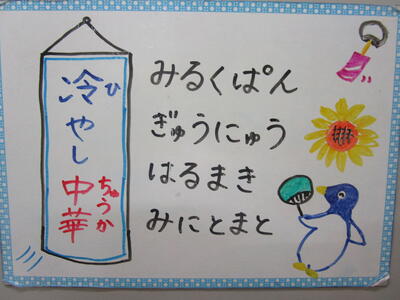 冷やし中華
ひ
ちゅうか
みるくぱん
ぎゅうにゅう
はるまき
みにとまと